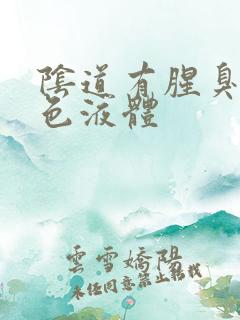 陰道有腥臭
色液體
雲雪嬌陽
未经同意禁止转载